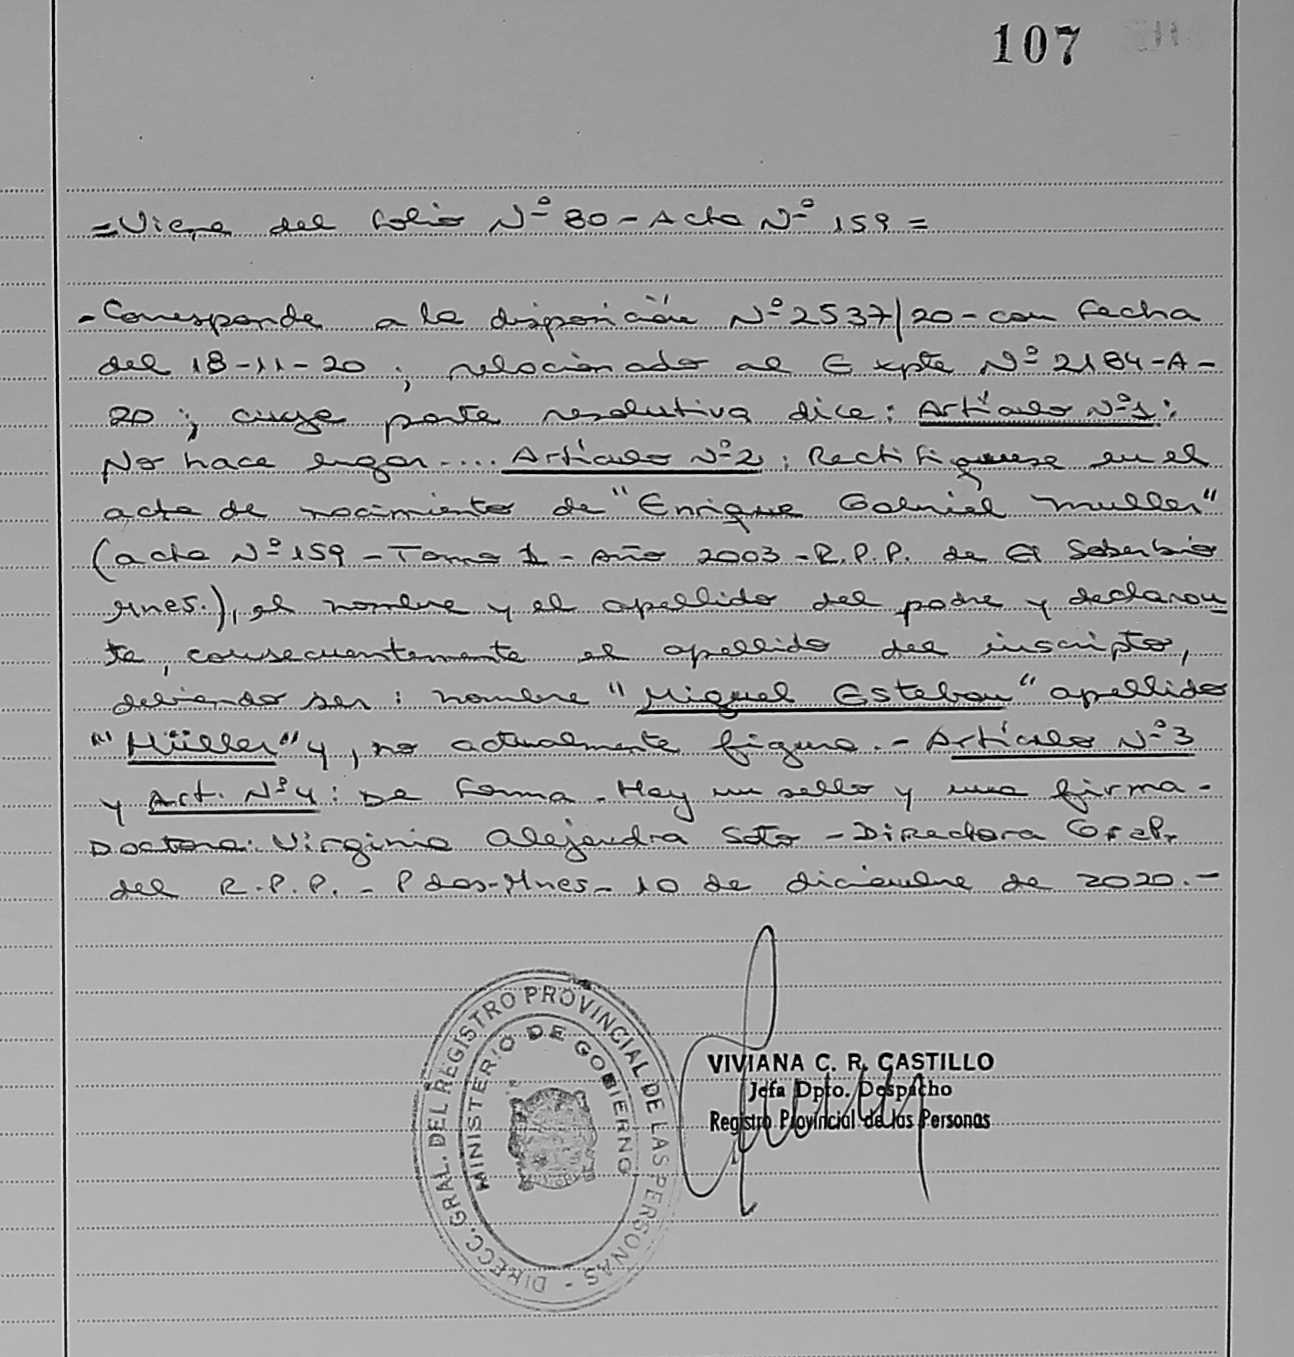 107
= Viene del folio Nº 80 - Acta Nº 159 =
- Corresponde a la disposición Nº 2537/20 - con fecha
del 18-11-20 ; relacionado al Expte Nº 2184-A-
20 ; cuya parte resolutiva dice : Artículo Nº 1 :
No hace lugar .... Artículo Nº 2 : Rectifíquese en el
acta de nacimiento de "Enrique Gabriel Muller"
(acta Nº 159 - Tomo 1 - Año 2003 - R.P.P. de El Soberbio
Mnes.), el nombre y el apellido del padre y declaran
te, consecuentemente el apellido del inscripto,
debiendo ser : nombre "Miguel Esteban" apellido
"Müller" y, no actualmente figura. - Artículo Nº 3
y Art. Nº 4 : De forma - Hay un sello y una firma -
Doctora : Virginia Alejandra Soto - Directora Gral.
del R.P.P. - Pdas - Mnes - 10 de diciembre de 2020. -
DIRECC. GRAL. DEL REGISTRO PROVINCIAL DE LAS PERSONAS -
MINISTERIO DE GOBIERNO
VIVIANA C. R. CASTILLO
Jefa Dpto. Despacho
Registro Provincial de las Personas